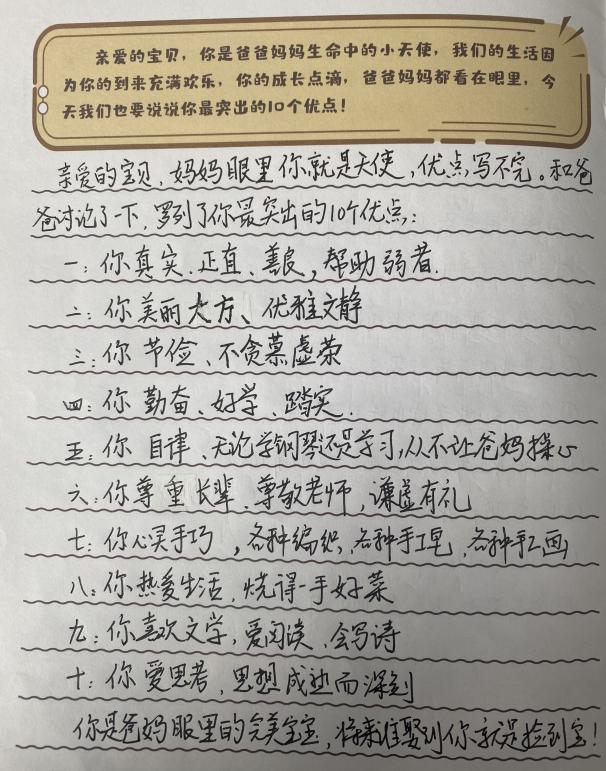 亲爱的宝贝，你是爸爸妈妈生命中的小天使，我们的生活因
为你的到来充满欢乐，你的成长点滴，爸爸妈妈都看在眼里，今
天我们也要说说你最突出的10个优点！
亲爱的宝贝，妈妈眼里你就是天使，优点写不完。和爸
爸讨论了一下，罗列了你最突出的10个优点：
一：你真实、正直、善良，帮助弱者.
二：你美丽大方、优雅文静
三：你 节俭、不贪慕虚荣
四：你 勤奋、好学、踏实.
五：你 自律、无论学钢琴还是学习，从不让爸妈操心
六：你尊重长辈、尊敬老师，谦虚有礼
七：你心灵手巧，各种编织、各种手工，各种手工画
八：你热爱生活，烧得一手好菜
九：你喜欢文学，爱阅读、会写诗
十：你 爱思考，思想成熟而深刻
你是爸妈眼里的完美宝宝，将来谁娶到你就是捡到宝！